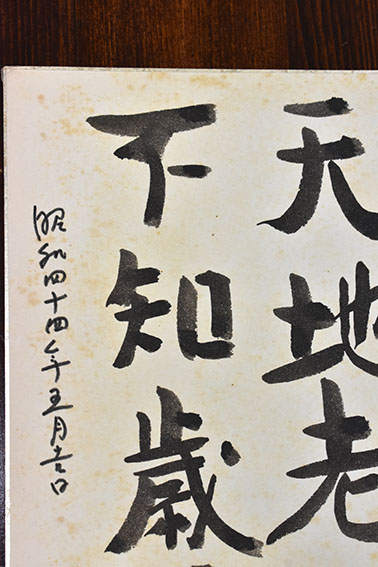 天地老
不知歳
昭和四十四年五月吉日